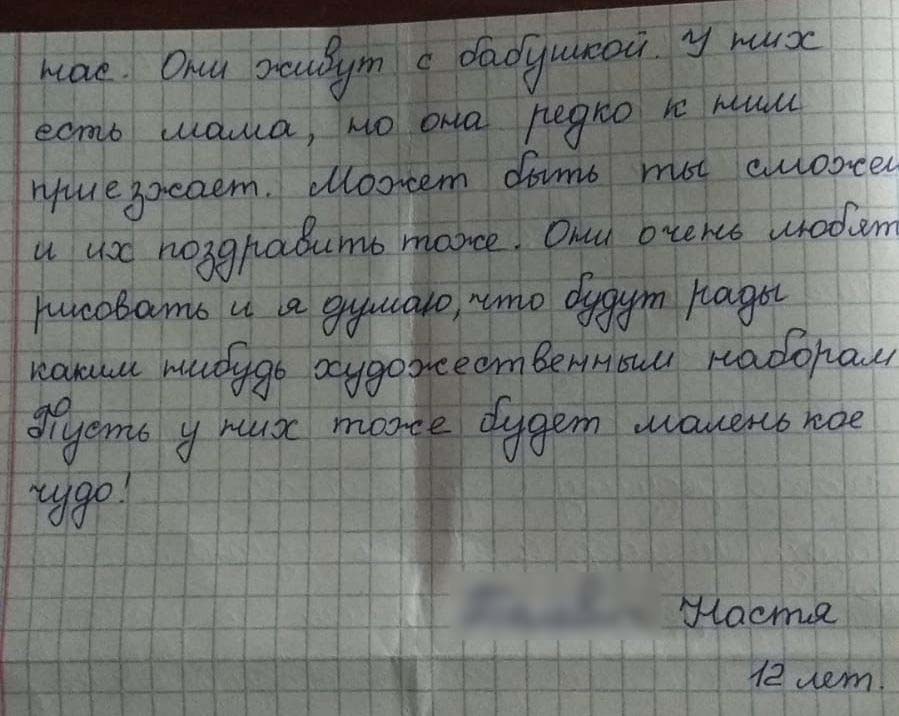 нас. Они живут с бабушкой. У них
есть мама, но она редко к ним
приезжает. Может быть ты сможеш
и их поздравить тоже. Они очень любят
рисовать и я думаю, что будут рады
каким нибудь художественным наборам
Пусть у них тоже будет маленькое
чудо!
Настя
12 лет.